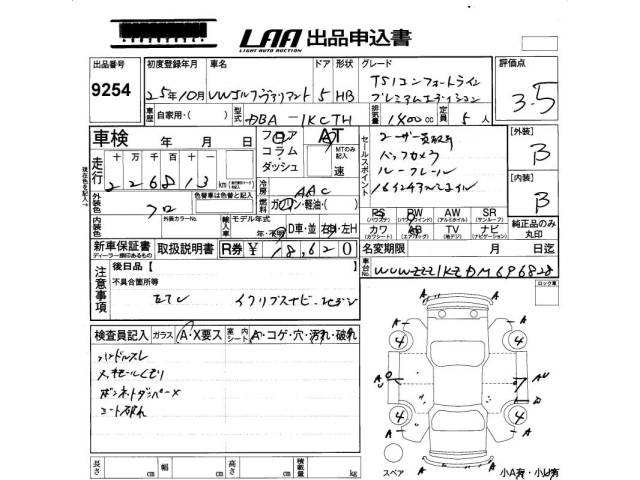 LAA 出品申込書
LIGHT AUTO AUCTION
出品番号 初度登録年月 車名 ドア 形状 グレード 評価点
9254 25年10月 VWゴルフヴァリアント 5 HB TSIコンフォートライン
プレミアムエディション 3.5
車歴 自家用・( ) 型式 DBA-1KCTH 排気量 1400cc 定員 5人
車検 年 月 日 フロア AT
コラム・ダッシュ MTのみ記入 速
セールスポイント
ユーザー買取車
バックカメラ
ルーフレール
16インチアルミホイル
[外装] B
[内装] B
走行 十 万 千 百 十
2 2 6 8 1 3 km
現在色を記入
外装色 クロ 色替車は色替と記入
冷房 AAC
燃料 ガソリン・軽油・( )
内装色 外装カラーNo. 輸入車 モデル年式 年・ D車・並 右H・左H
PS PW AW SR
(パワステ) (パワーウィンド) (アルミホイル) (サンルーフ)
カワ AB TV ナビ
(カワシート) (エアバッグ) (地デジ) (ナビゲーション)
純正品のみ丸印
新車保証書 取扱説明書 R券 ¥ 18,620
ディーラー捺印あるもの
名変期限 月 日迄
車台No. WVWZZZ1KZDM696828
注意事項 後日品 [ ]
不具合箇所等
ETC イクリプスナビ
ロック車
検査員記入 ガラス A・X要ス 室内シート A・コゲ・穴・汚れ・破れ
ハンドルスレ
メッキモールくもり
ボンネットダンパーX
シート破れ
4 4
A U A U
4 4
A A A A
長さ cm 幅 cm 高さ cm 積載量 kg
スペア 小A有・小U有